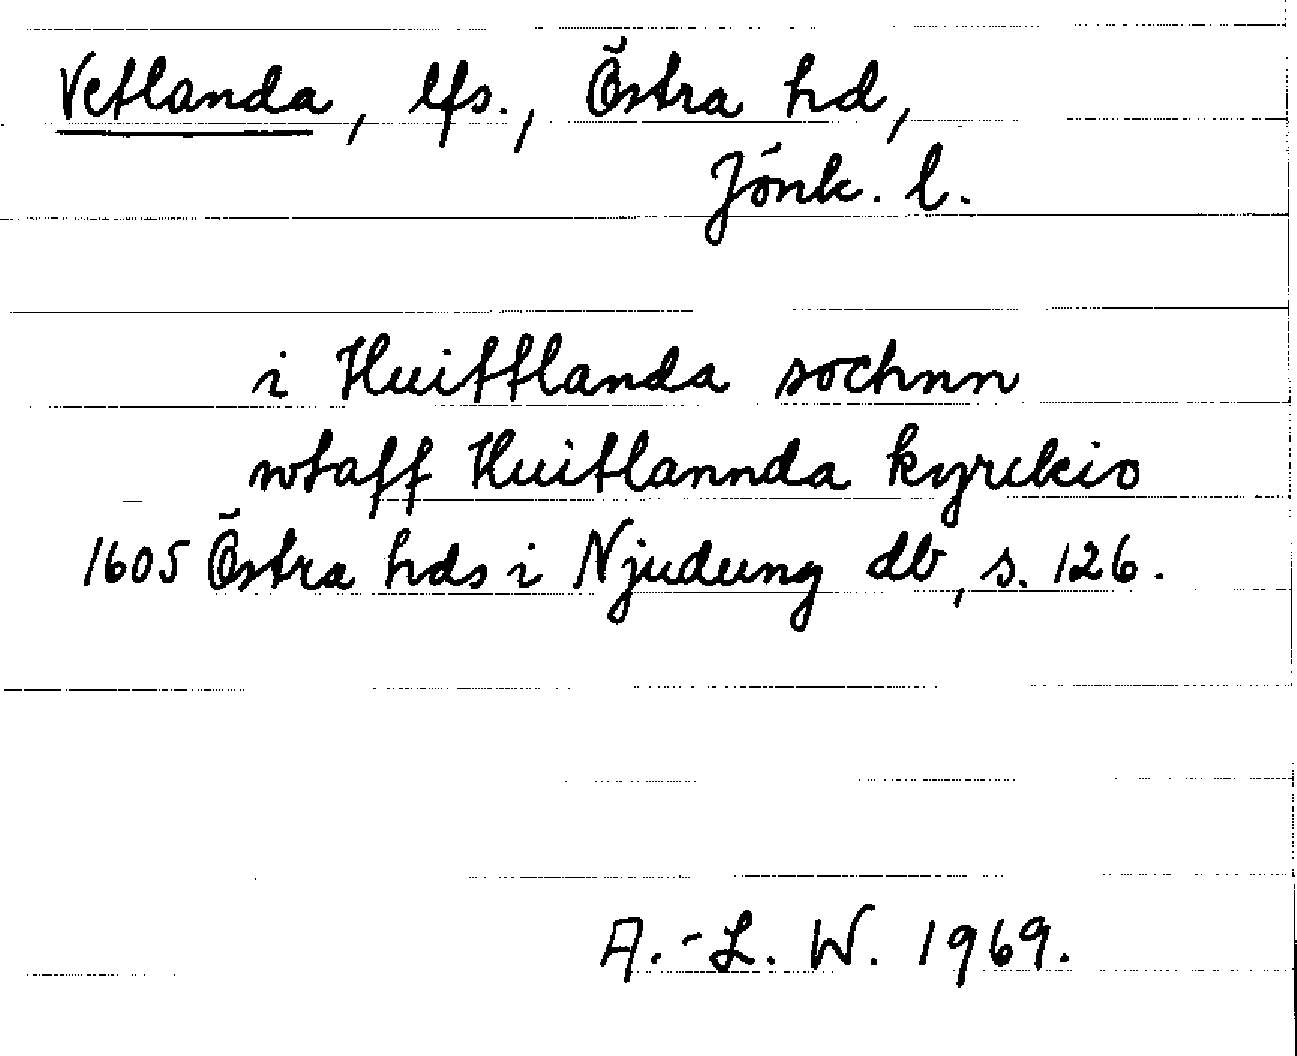 Vetlanda, lfs., Östra hd,
Jönk. l.
i Huittlanda sochnn
wtaff Huitlannda kyrckio
1605 Östra hds i Njudung db, s. 126.
A.-L. W. 1969.